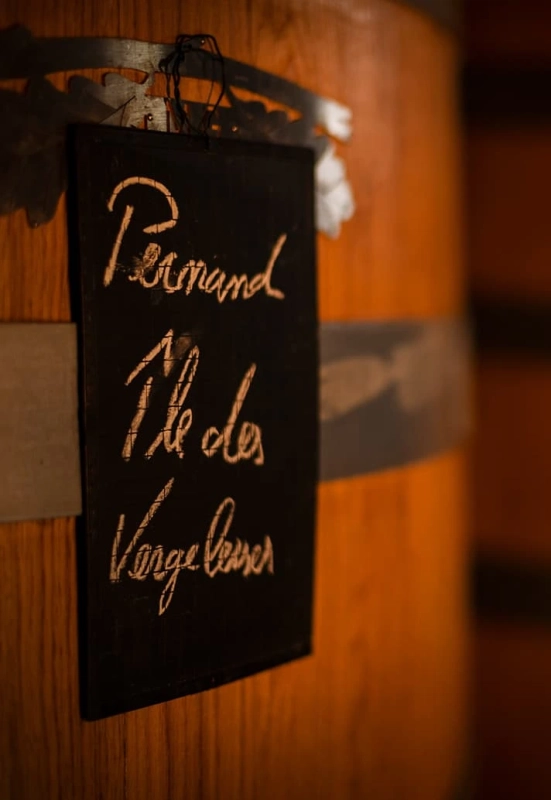 Pernand
Île des
Vergelesses